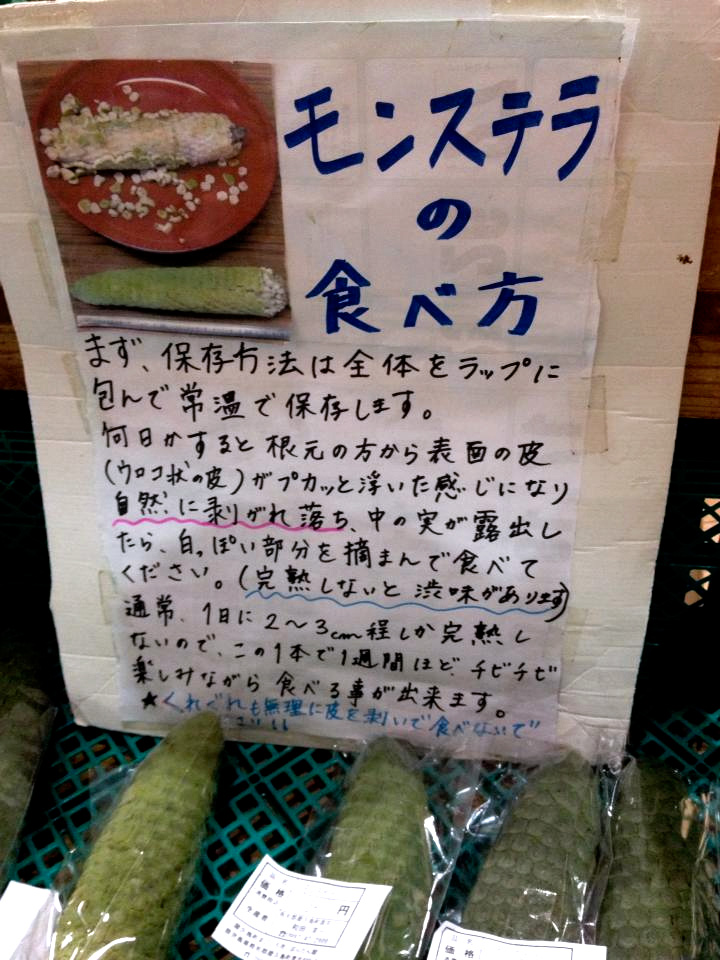 モンステラ
の
食べ方
まず、保存方法は全体をラップに
包んで常温で保存します。
何日かすると根元の方から表面の皮
(ウロコ状の皮)がプカッと浮いた感じになり
自然に剥がれ落ち、中の実が露出し
たら、白っぽい部分を摘まんで食べて
ください。(完熟しないと渋味があります)
通常、1日に2〜3cm程しか完熟し
ないので、この1本で1週間ほど、チビチビ
楽しみながら食べる事が出来ます。
★くれぐれも無理に皮を剥いで食べないで
さい!!
価格 円
価格